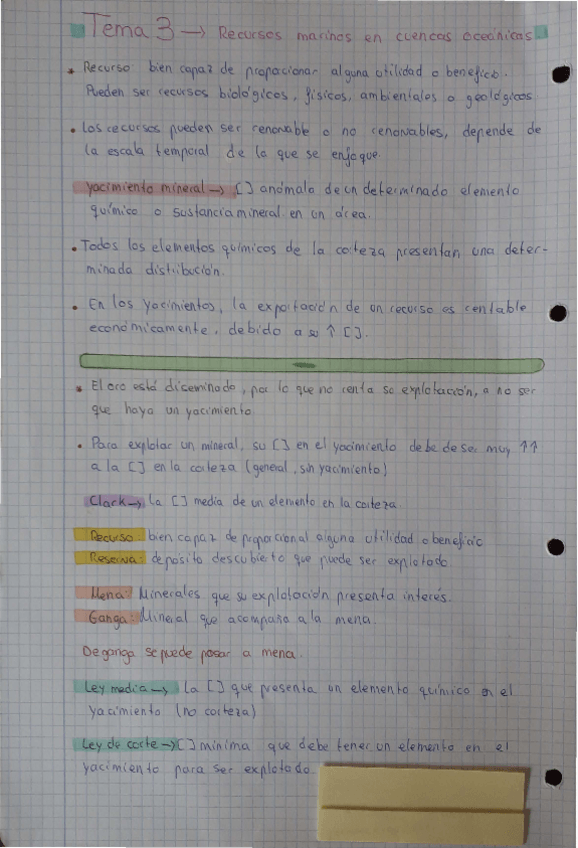 Tema 3 → Recursos marinos en cuencas oceánicas
• Recurso: bien capaz de propocionar alguna utilidad o beneficio.
Pueden ser recursos biológicos, físicos, ambientales o geológicos
• Los recursos pueden ser renovable o no renovables, depende de
la escala temporal de la que se enfoque.
Yacimiento mineral → [ ] anómala de un determinado elemento
químico o sustancia mineral en un área.
• Todos los elementos químicos de la corteza presentan una deter-
minada distribución.
• En los yacimientos, la exportación de un recurso es rentable
económicamente, debido a su ↑ [ ].
• El oro está diseminado, por lo que no renta su explotación, a no ser
que haya un yacimiento
• Para explotar un mineral, su [ ] en el yacimiento debe de ser muy ↑↑
a la [ ] en la corteza (general, sin yacimiento)
Clark → La [ ] media de un elemento en la corteza.
Recurso: bien capaz de proporcional alguna utilidad o beneficio
Reserva: depósito descubierto que puede ser explotado.
Mena: Minerales que su explotación presenta interés.
Ganga: Mineral que acompaña a la mena.
De ganga se puede pasar a mena.
Ley media → la [ ] que presenta un elemento químico en el
yacimiento (no corteza)
Ley de corte → [ ] mínima que debe tener un elemento en el
yacimiento para ser explotado.